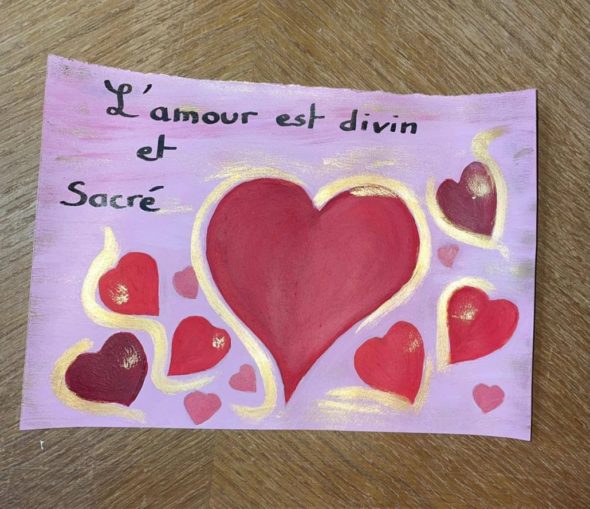 L'amour est divin
et
Sacré